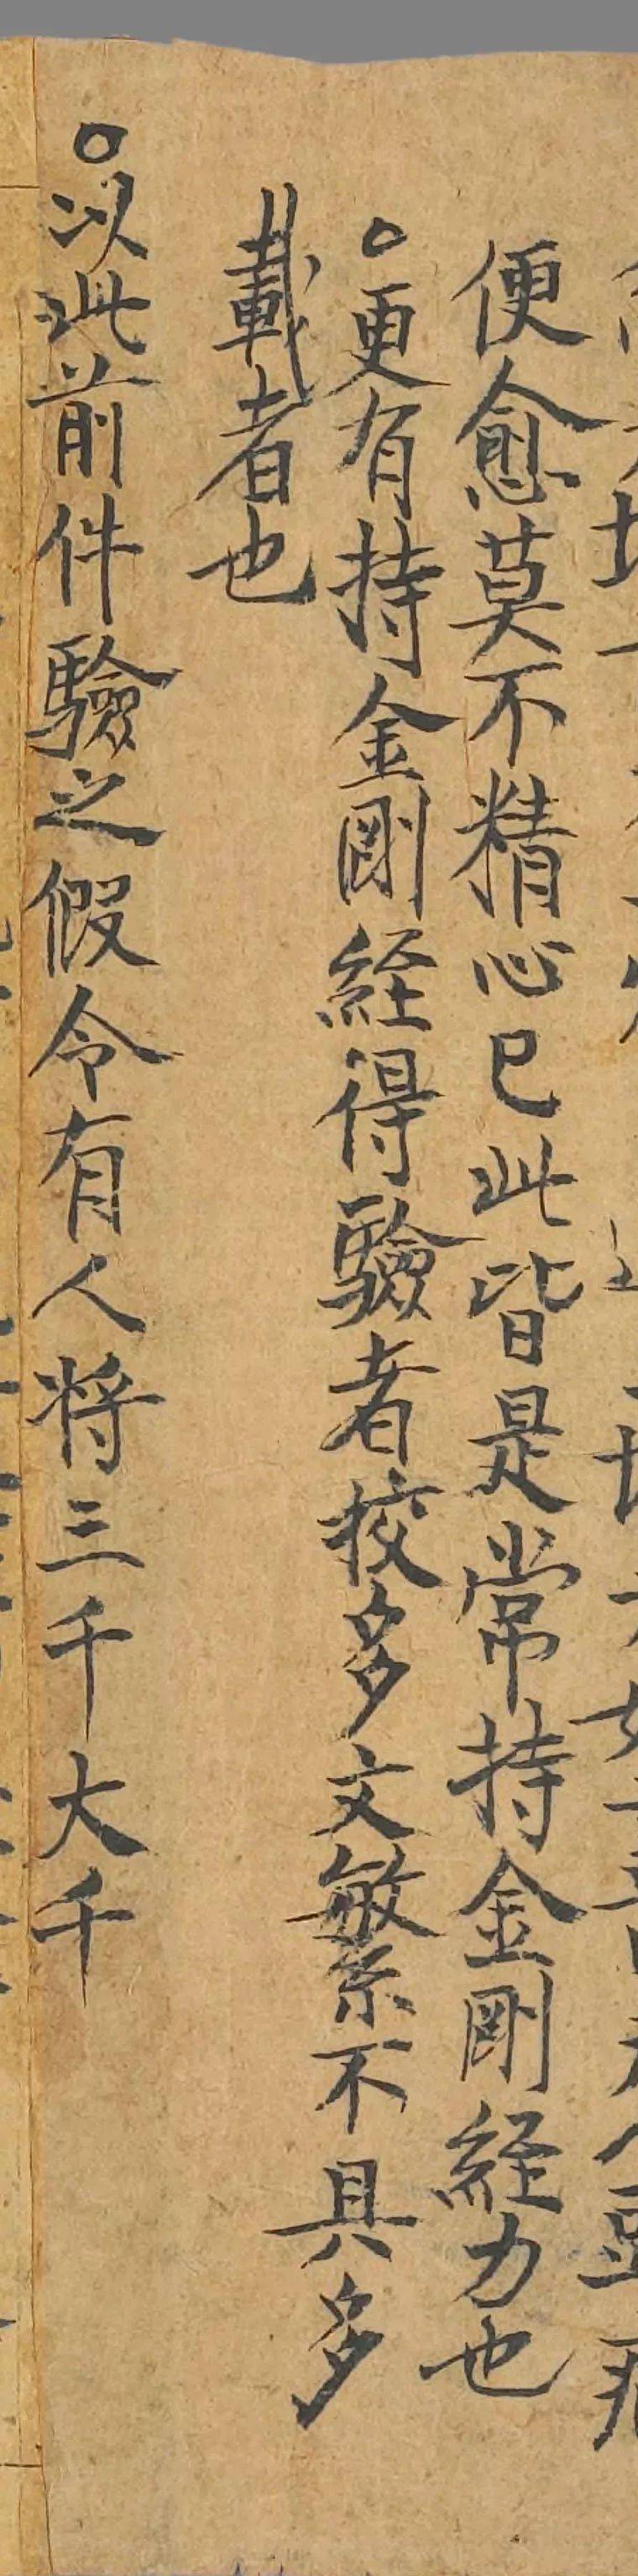 便愈莫不精心已此皆是常持金剛経力也
○更有持金剛経得驗者挍多文繁不具多
載者也
○以此前件驗之假令有人将三千大千